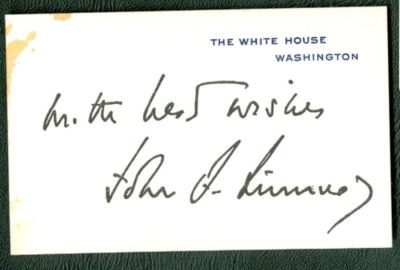 THE WHITE HOUSE
WASHINGTON
With best wishes
John